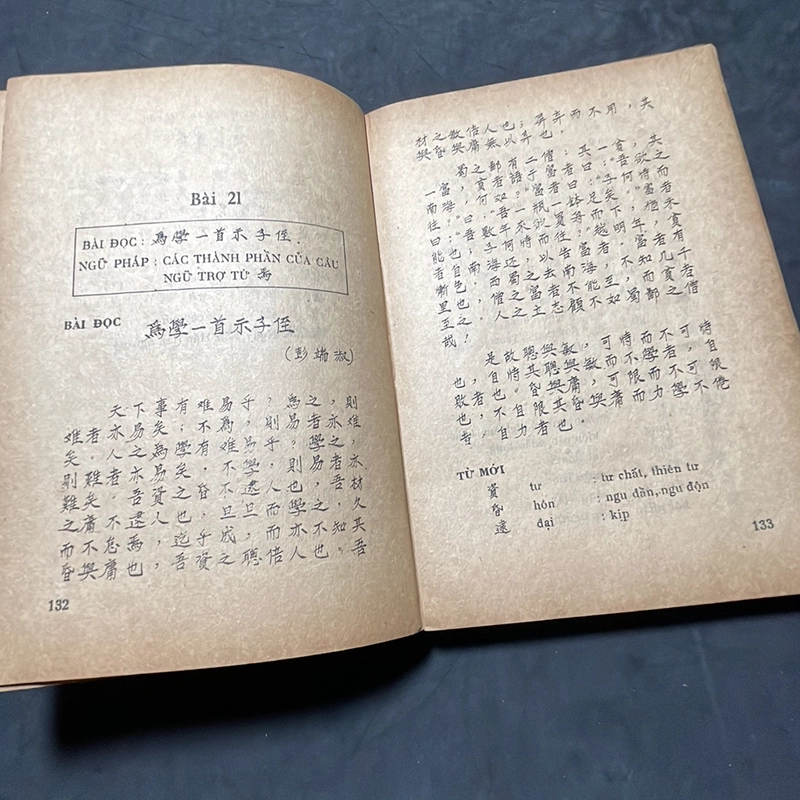 Bài 21
BÀI ĐỌC : 爲學一首示子侄.
NGỮ PHÁP : CÁC THÀNH PHẦN CỦA CÂU
NGỮ TRỢ TỪ 焉
BÀI ĐỌC
爲學一首示子侄
(彭端淑)
天下事有难易乎? 爲之, 則
难者亦易矣; 不爲, 則易者亦难
矣. 人之爲學有难易乎? 學之,
則難者亦易矣. 不學, 則易者亦
難矣. 吾資之昏不逮人也, 吾材
之庸不逮人也, 旦旦而學之, 久
而不怠焉, 迄乎成, 而亦不知其
昏與庸也, 吾資之聰倍人也. 吾
132
材之敏倍人也; 屏弃而不用, 其
與昏與庸無以异也.
蜀之鄙有二僧: 其一貧, 其
一富, 貧者語于富者曰: "吾欲之
南海, 何如? "富者曰: "子何恃而
往? "曰: "吾一瓶一鉢足矣. "富者
曰: "吾數年來欲買舟而下, 猶未
能也, 子何恃而往? "越明年, 貧
者自南海还, 以告富者. 富者有
慚色, 西蜀之去南海, 不知几千
里也, 僧之富者不能至, 而貧者
至之. 人之立志顧不如蜀鄙之僧
哉!
是故聰與敏, 可恃而不可恃
也, 自恃其聰與敏而不學者, 自
敗者也. 昏與庸, 可限而不可限
也, 不自限其昏與庸而力學不倦
者, 自力者也.
TỪ MỚI
資 tư : tư chất, thiên tư
昏 hón : ngu dần, ngu độn
逮 đại : kịp
133